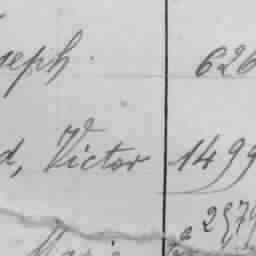 seph. 626
d, Victor 1499
Marie